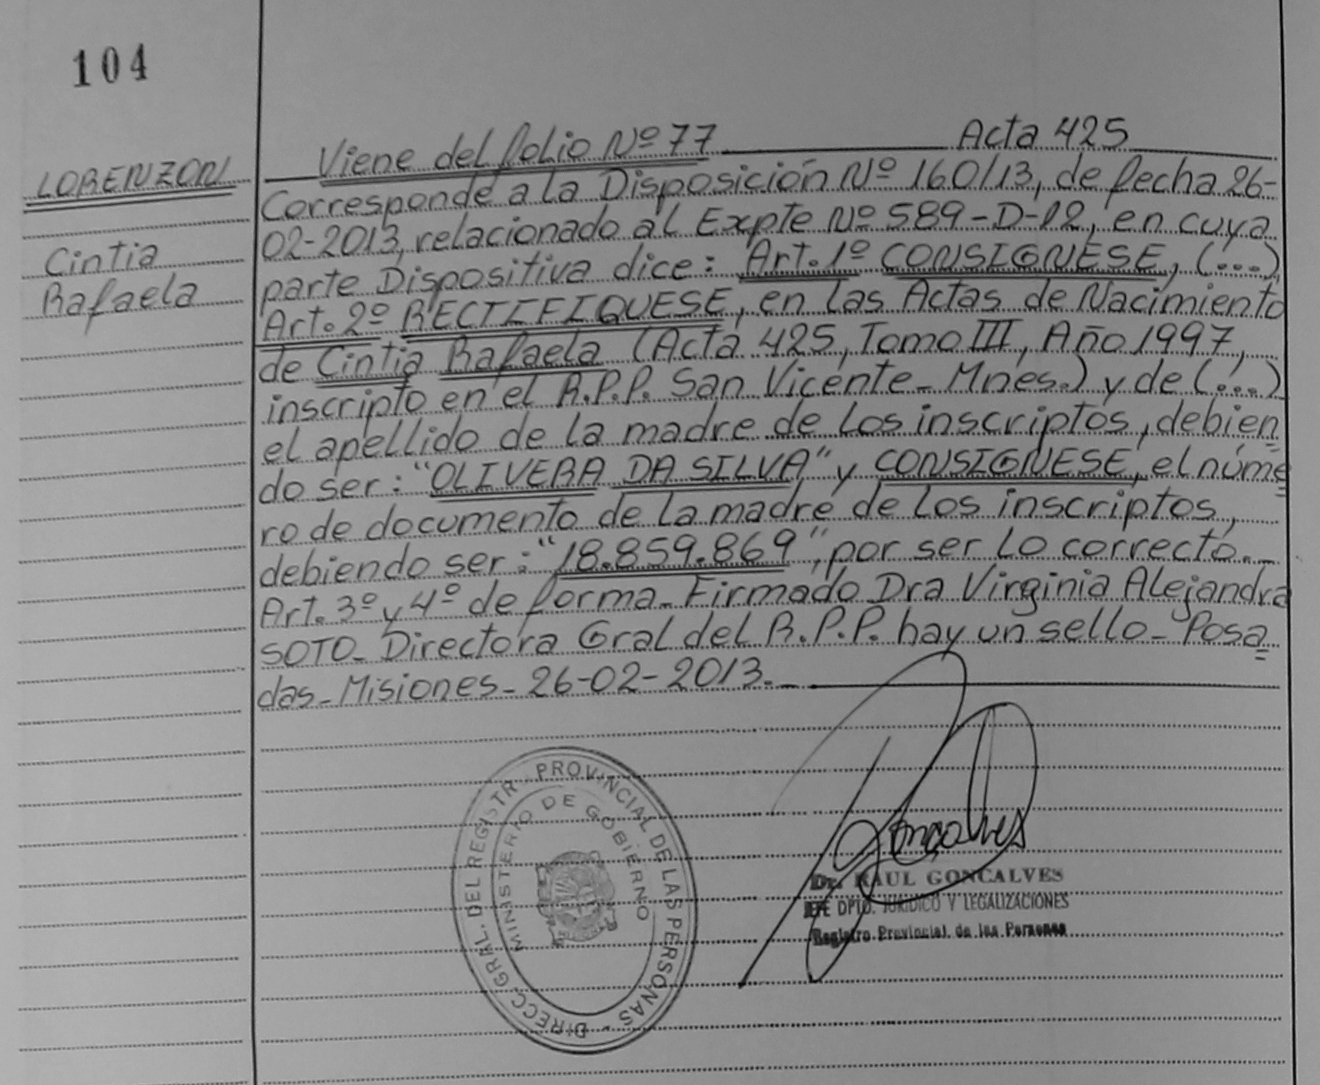 104
Viene del folio Nº 77 Acta 425
LORENZON
Cintia
Rafaela
Corresponde a la Disposición Nº 160/13, de fecha 26-
02-2013, relacionado al Expte Nº 589-D-12, en cuya
parte Dispositiva dice: Art. 1º CONSIGNESE, (...)
Art. 2º RECTIFIQUESE, en las Actas de Nacimiento
de Cintia Rafaela (Acta 425, Tomo III, Año 1997,
inscripto en el R.P.P. San Vicente - Mnes.) y de (...)
el apellido de la madre de los inscriptos, debien
do ser: "OLIVERA DA SILVA" y CONSIGNESE, el núme
ro de documento de la madre de los inscriptos,
debiendo ser: "18.859.869", por ser lo correcto.-
Art. 3º y 4º de forma - Firmado Dra Virginia Alejandra
SOTO - Directora Gral del R.P.P. hay un sello - Posa
das - Misiones - 26-02-2013.-
DIRECC. GRAL. DEL REGISTR. PROVINCIAL DE LAS PERSONAS
MINISTERIO DE GOBIERNO
Goncalves
Dr. RAUL GONCALVES
JEFE DPTO. JURIDICO Y LEGALIZACIONES
Registro Provincial de las Personas